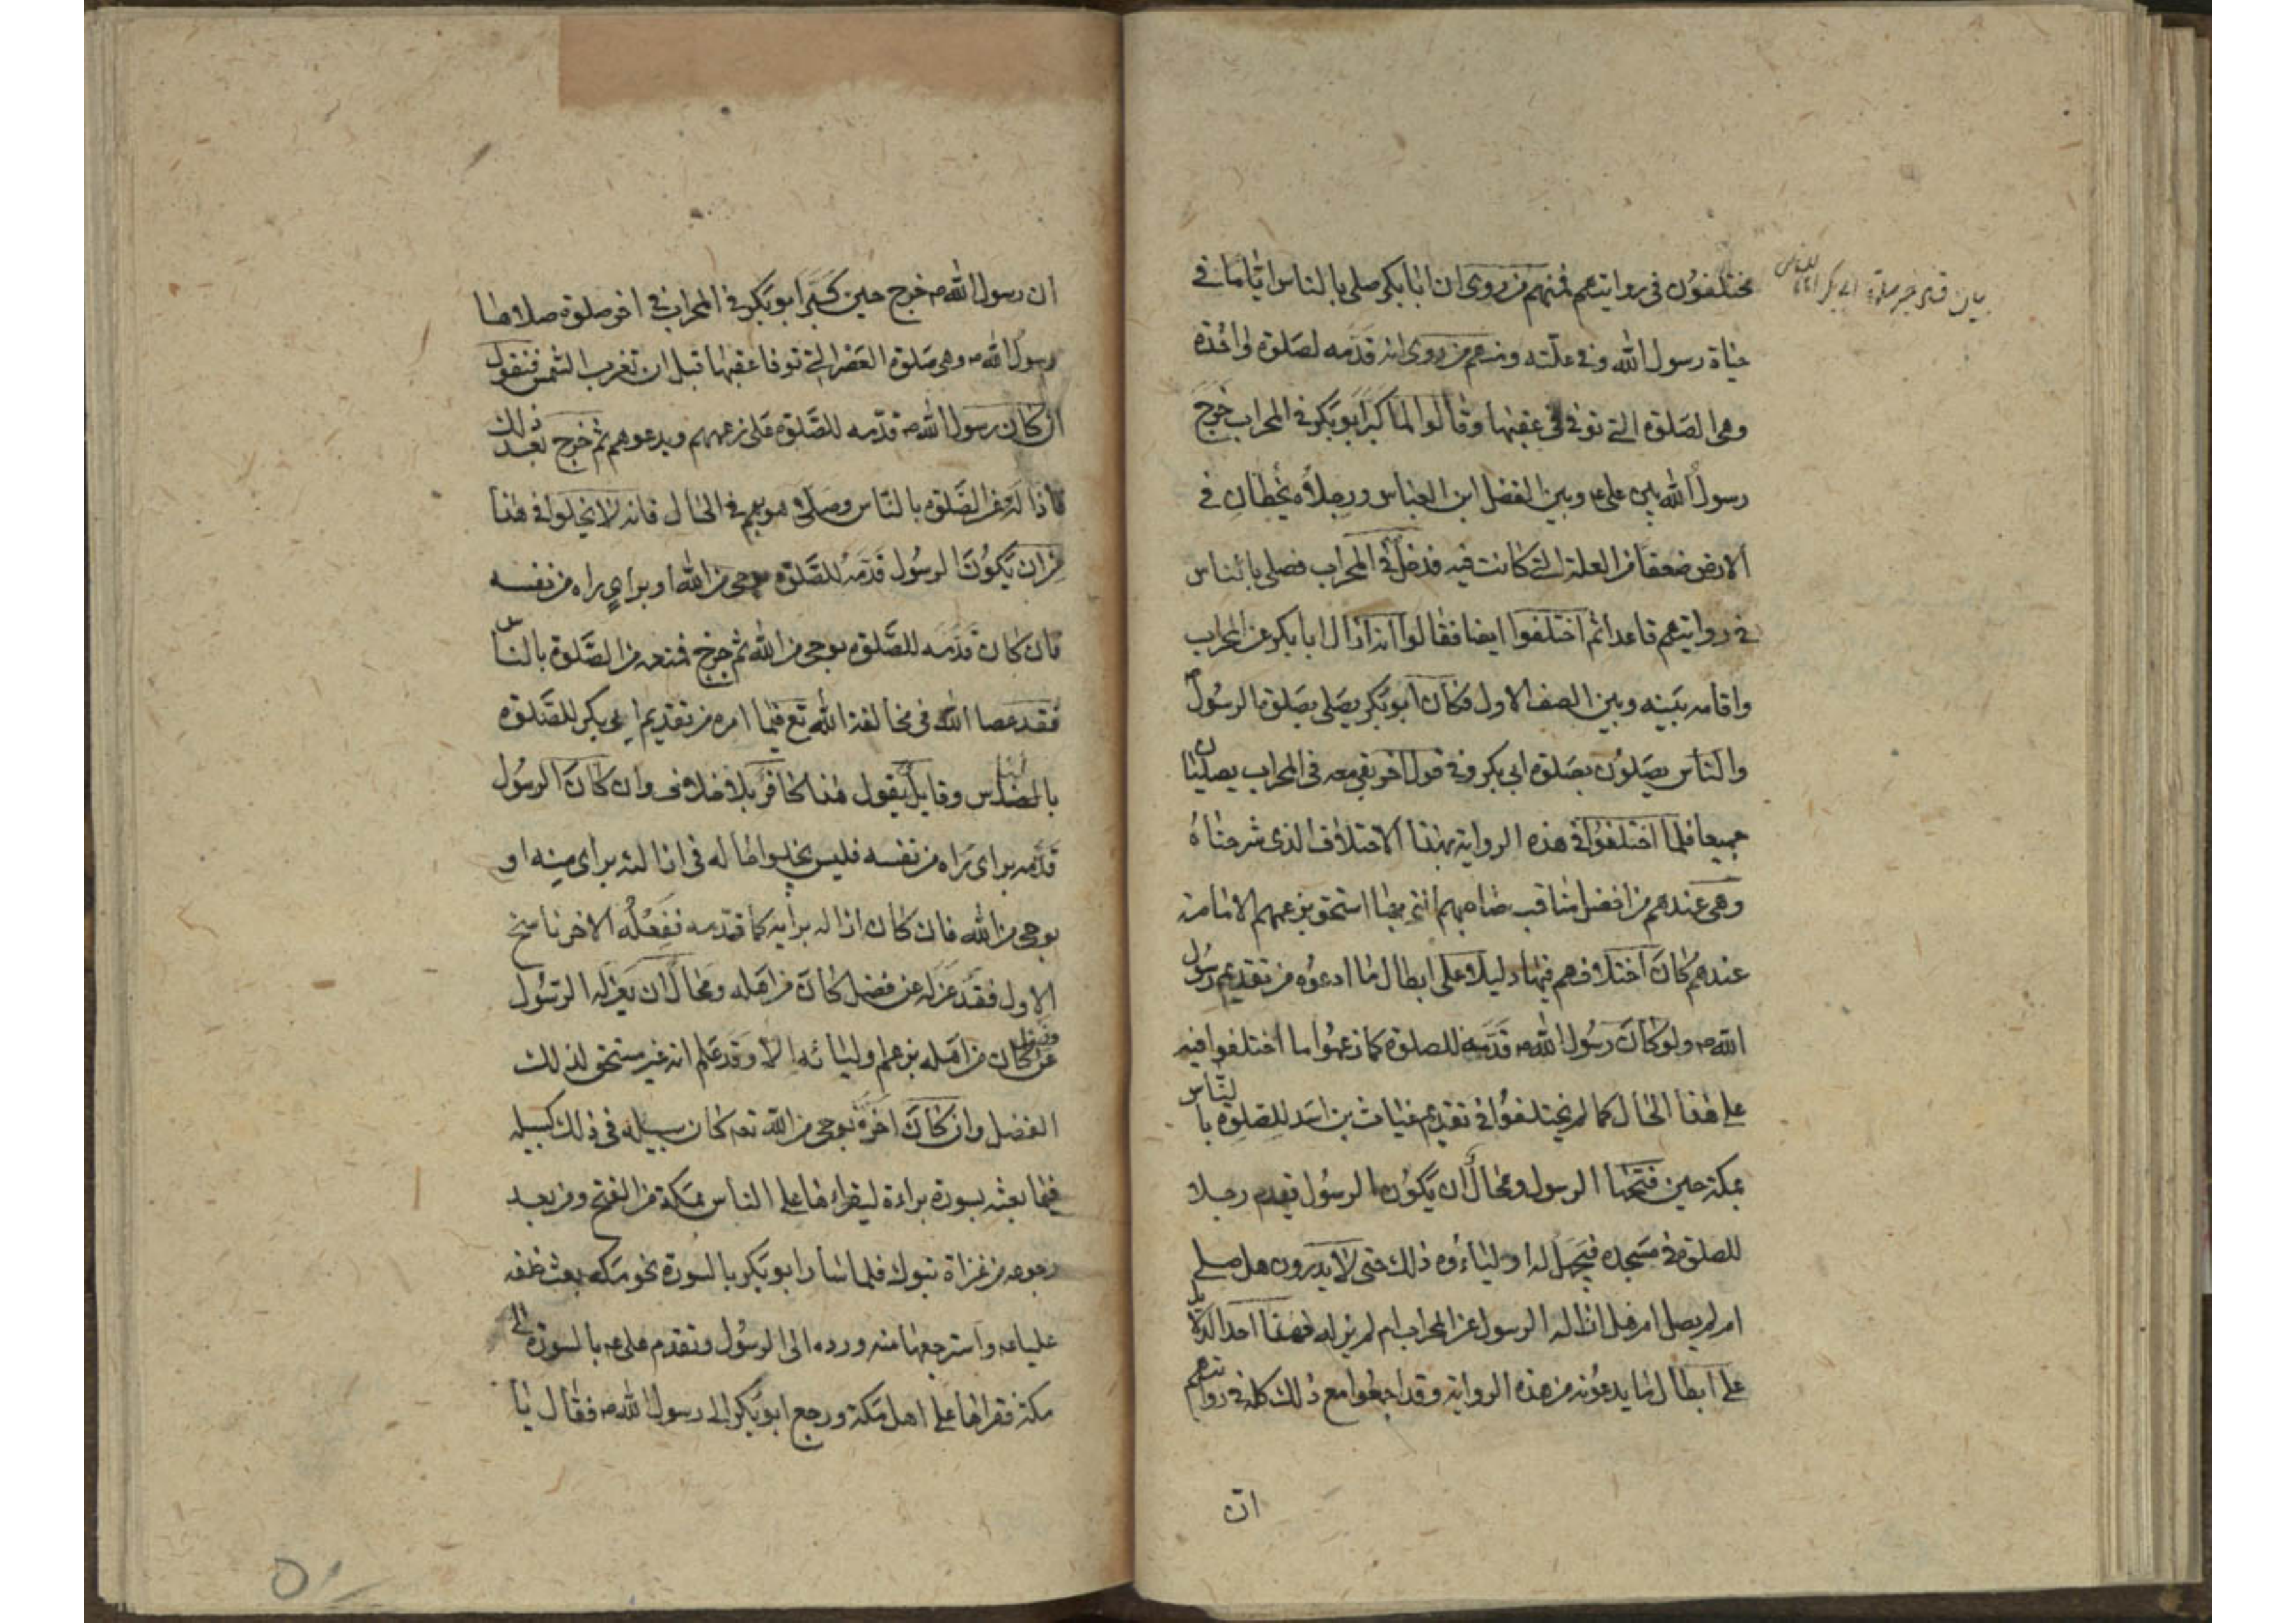 مختلفون فى روايتهم فمنهم من روى ان ابا بكر صلى بالناس اياما فى
حياة رسول الله وفى علته ومنهم من روى انه قدمه لصلوة واحدة
وهى الصلوة التى توفى فى عقبها وقالوا لما كبر ابو بكر فى المحراب خرج
رسول الله بين على ع وبين الفضل ابن العباس ورجلاه يخطان فى
الارض ضعفا من العلة التى كانت فيه فدخل فى المحراب فصلى بالناس
فى روايتهم قاعدا ثم اختلفوا ايضا فقالوا انه ازال ابا بكر عن المحراب
واقامه بينه وبين الصف الاول فكان ابو بكر يصلى بصلوة الرسول ص
والناس يصلون بصلوة ابى بكر وفى قول اخر بقى معه فى المحراب يصليان
جميعا فلما اختلفوا فى هذه الرواية بهذا الاختلاف الذى شرحناه
وهى عندهم من افضل مناقب صاحبهم التى بها استحق بزعمهم الامامة
عندهم كان اختلافهم فيها دليلا على ابطال ما ادعوه من تقديم رسول
الله ص ولو كان رسول الله ص قدمه للصلوة كما زعموا ما اختلفوا فيه
على هذا الحال كما لم يختلفوا فى تقديم غياث بن اسد للصلوة بالناس
بمكة حين فتحها الرسول ومحال ان يكون الرسول يقدم رجلا
للصلوة فى مسجده فيجهل له اولياؤه ذلك حتى لا يدرون هل صلى
ام لم يصل ام هل ازاله الرسول عن المحراب ام لم يزله فهذا احد الدلايل
على ابطال ما يدعونه من هذه الرواية وقد اجمعوا مع ذلك كله فى روايتهم
ان
بيان صلوة ابى بكر بالناس
ان رسول الله ص خرج حين كبر ابو بكر فى المحراب فى اخر صلوة صلاها
رسول الله ص وهى صلوة العصر التى توفا عقبها قبل ان تغرب الشمس فنقول
ان كان رسول الله ص قدمه للصلوة على زعمهم ويدعوهم ثم خرج بعد ذلك
فازاله عن الصلوة بالناس وصلى هو بهم فى الحال فانه لا يخلوا فى هذا
من ان يكون الرسول قدمه للصلوة بوحى من الله او براى راه من نفسه
فان كان قدمه للصلوة بوحى من الله ثم خرج فمنعه من الصلوة بالناس
فقد عصا الله فى مخالفة الله تع فيما امره من تقديم ابى بكر للصلوة
بالناس وقايل يقول هذا كافر بلا خلاف وان كان الرسول
قدمه براى راه من نفسه فليس يخلوا حاله فى ازالته براى منه او
بوحى من الله فان كان ازاله برايه كما قدمه ففعله الاخر ناسخ
الاول فقد عزله عن فضل كان من اهله ومحال ان يعزله الرسول
عن فضل كان من اهله بزعم اوليائه الا وقد علم انه غير مستحق لذلك
الفضل وان كان اخره بوحى من الله تع كان سبيله فى ذلك كسبيله
فيما بعثه بسورة براءة ليقراءها على الناس بمكة من الفتح ومن بعد
رجوعه من غزاة تبوك فلما سار ابو بكر بالسورة نحو مكة بعث خلفه
عليا ع واسترجعها منه ورده الى الرسول وتقدم على ع بالسورة الى
مكة فقراها على اهل مكة ورجع ابو بكر الى رسول الله ص فقال يا